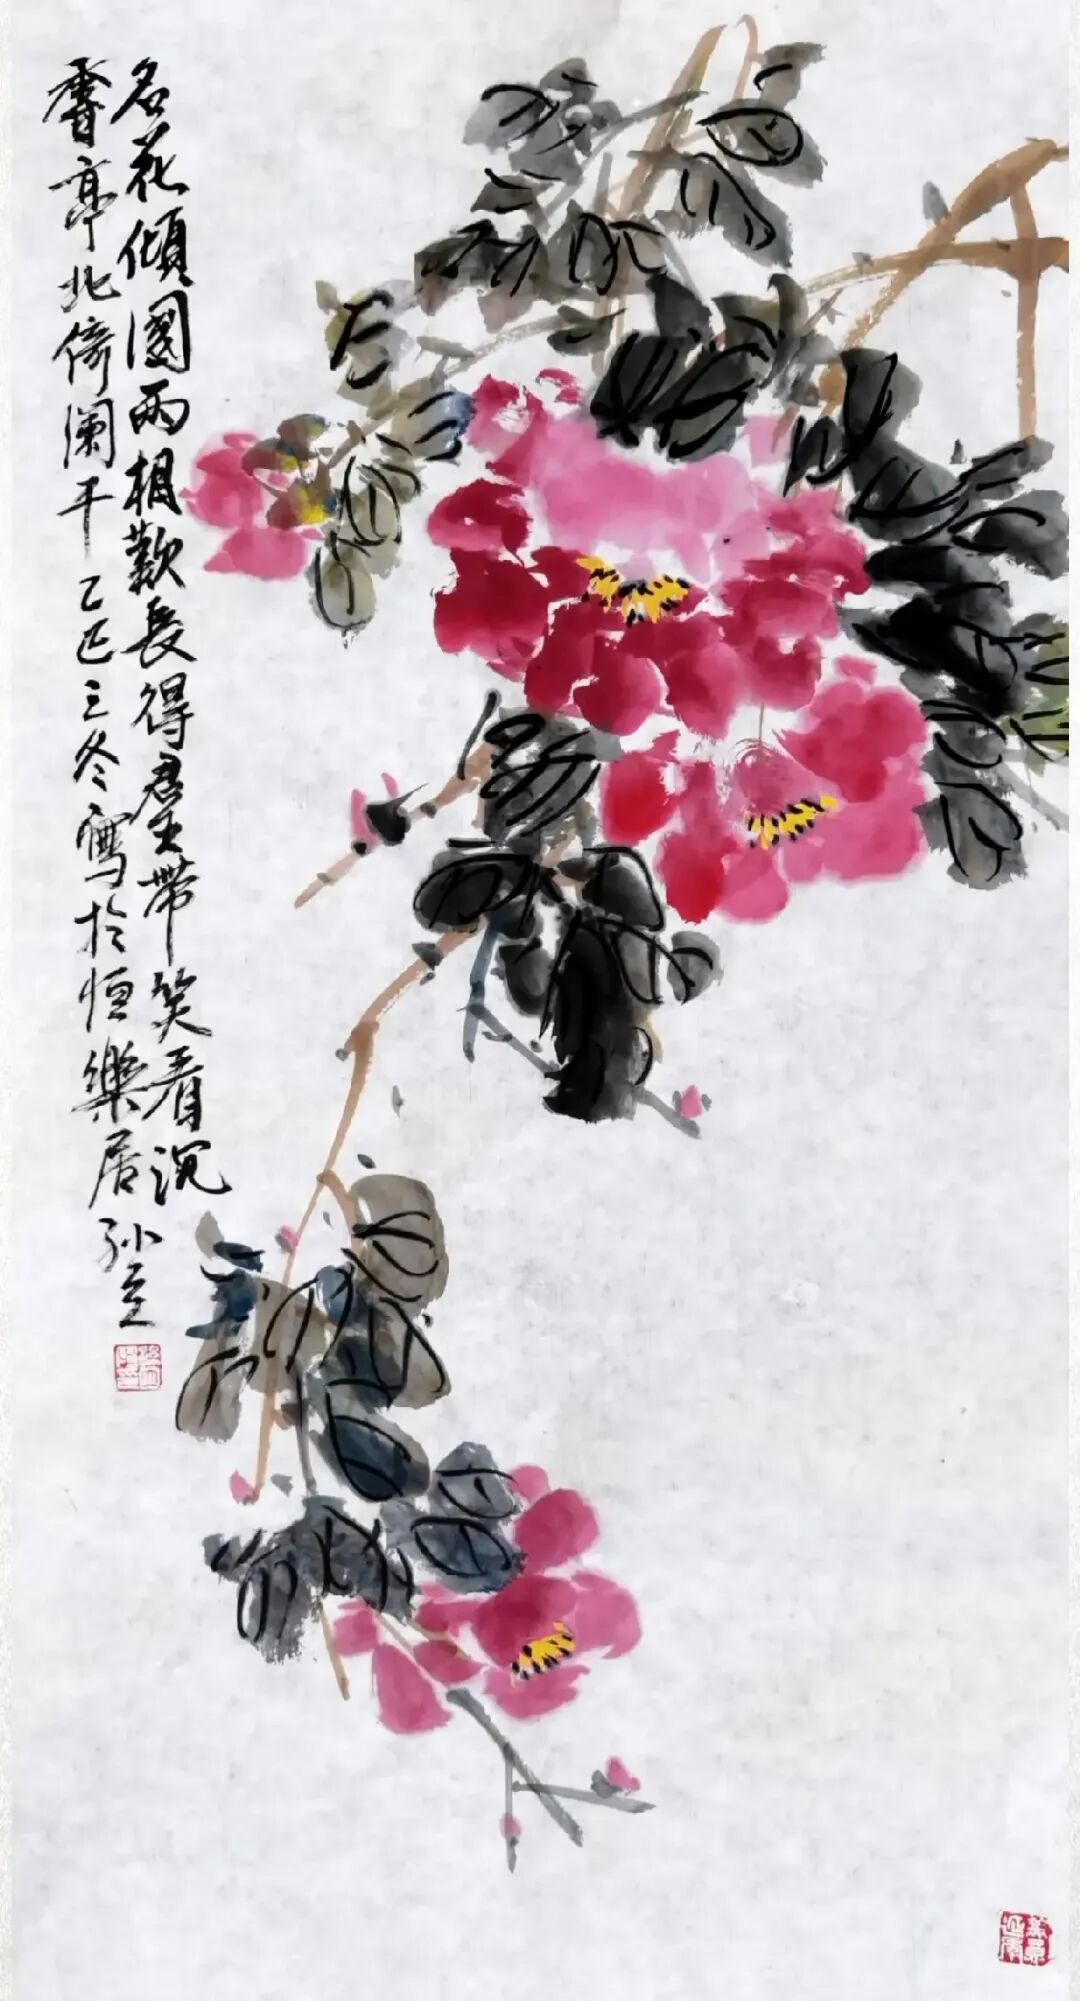 名花傾國兩相歡長得君王帶笑看沉
香亭北倚闌干乙巳三冬寫於恒樂居孙